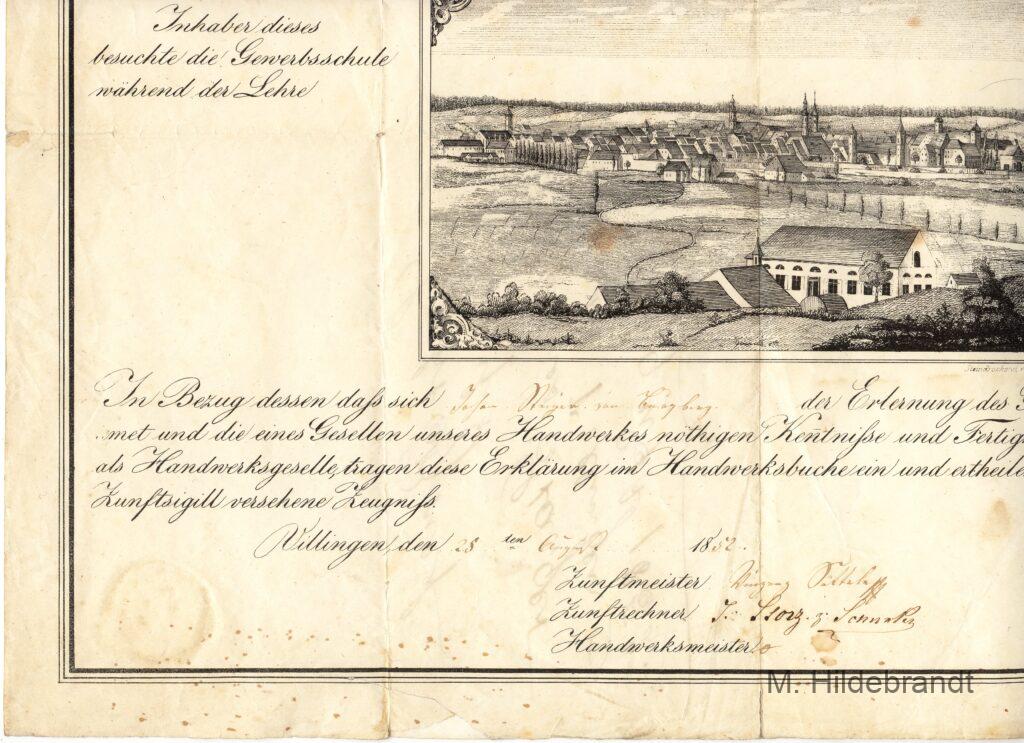 Inhaber dieses
besuchte die Gewerbsschule
während der Lehre
In Bezug dessen daſs sich von Burgberg der Erlernung des
met und die eines Gesellen unseres Handwerkes nöthigen Keñtniſse und Fertig
als Handwerksgeselle, tragen diese Erklärung im Handwerksbuche ein und ertheile
Zunftsigill versehene Zeugniſs.
Villingen, den 28 ten August 1852.
Zunftmeister
Zunftrechner J. Storz
Handwerksmeister
M. Hildebrandt